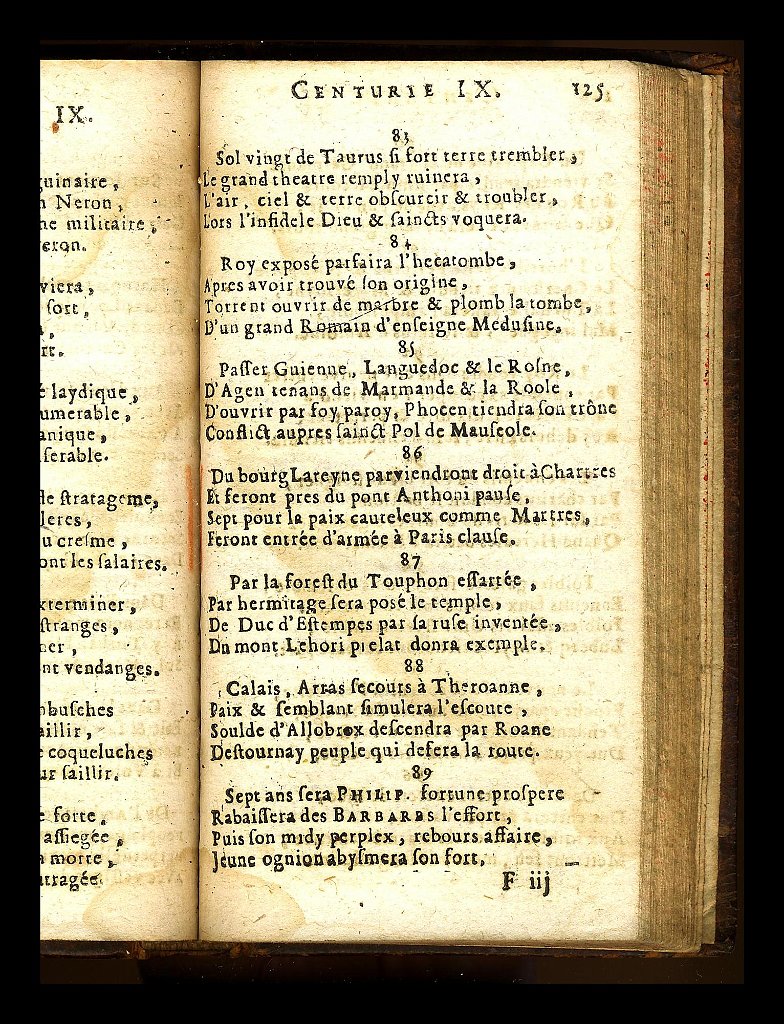 IX.
uinaire,
n Neron,
ne militaire,
eron.
viera,
sort,
rt.
é laydique,
umerable,
anique,
serable.
le ſtratageme,
leres,
u creſme,
ont les ſalaires.
xterminer,
ſtranges,
ner,
nt vendanges.
buſches
aillir,
e coqueluches
ur ſaillir.
e forte,
aſſiegée,
a morte,
utragée.
CENTURIE IX. 125
83
Sol vingt de Taurus ſi fort terre trembler,
Le grand theatre remply ruinera,
L'air, ciel & terre obſcurcir & troubler,
Lors l'infidele Dieu & ſaincts voquera.
84
Roy expoſé parfaira l'hecatombe,
Apres avoir trouvé ſon origine,
Torrent ouvrir de marbre & plomb la tombe,
D'un grand Romain d'enſeigne Meduſine.
85
Paſſer Guienne, Languedoc & le Roſne,
D'Agen tenans de Marmande & la Roole,
D'ouvrir par foy paroy, Phocen tiendra ſon trône
Conflict aupres ſainct Pol de Mauſeole.
86
Du bourg Lareyne parviendront droit à Chartres
Et feront pres du pont Anthoni pauſe,
Sept pour la paix cauteleux comme Martres,
Feront entrée d'armée à Paris clauſe.
87
Par la foreſt du Touphon eſſartée,
Par hermitage ſera poſé le temple,
De Duc d'Eſtempes par ſa ruſe inventée,
Du mont Lehori prelat donra exemple.
88
Calais, Arras ſecours à Theroanne,
Paix & ſemblant ſimulera l'eſcoute,
Soulde d'Allobrox deſcendra par Roane
Deſtournay peuple qui defera la route.
89
Sept ans ſera PHILIP. fortune proſpere
Rabaiſſera des BARBARES l'effort,
Puis ſon midy perplex, rebours affaire,
Jeune ognion abyſmera ſon fort.
F iij